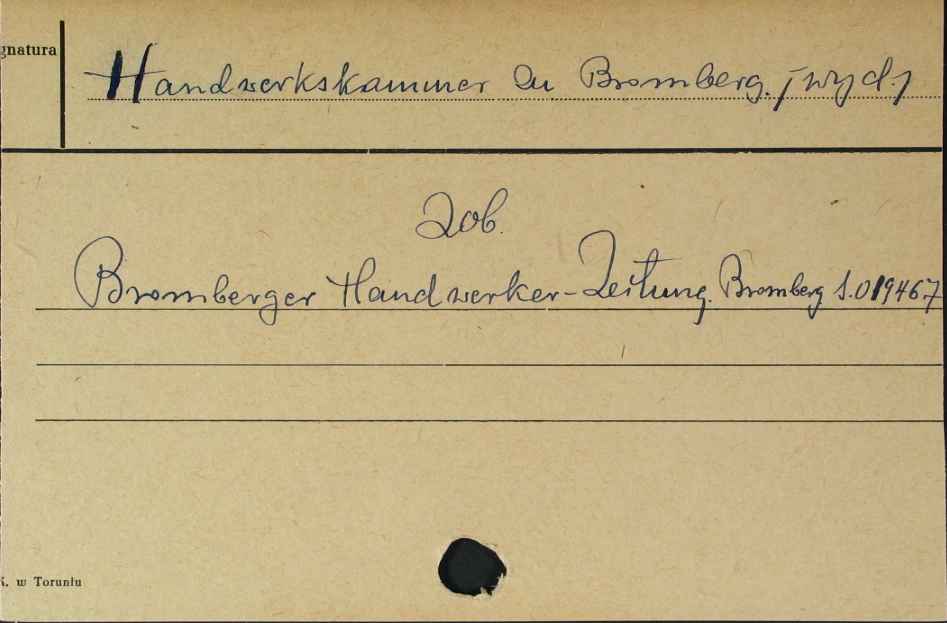 gnatura
Handwerkskammer zu Bromberg. /wyd./
Zob.
Bromberger Handwerker-Zeitung. Bromberg S.019467
K. w Toruniu